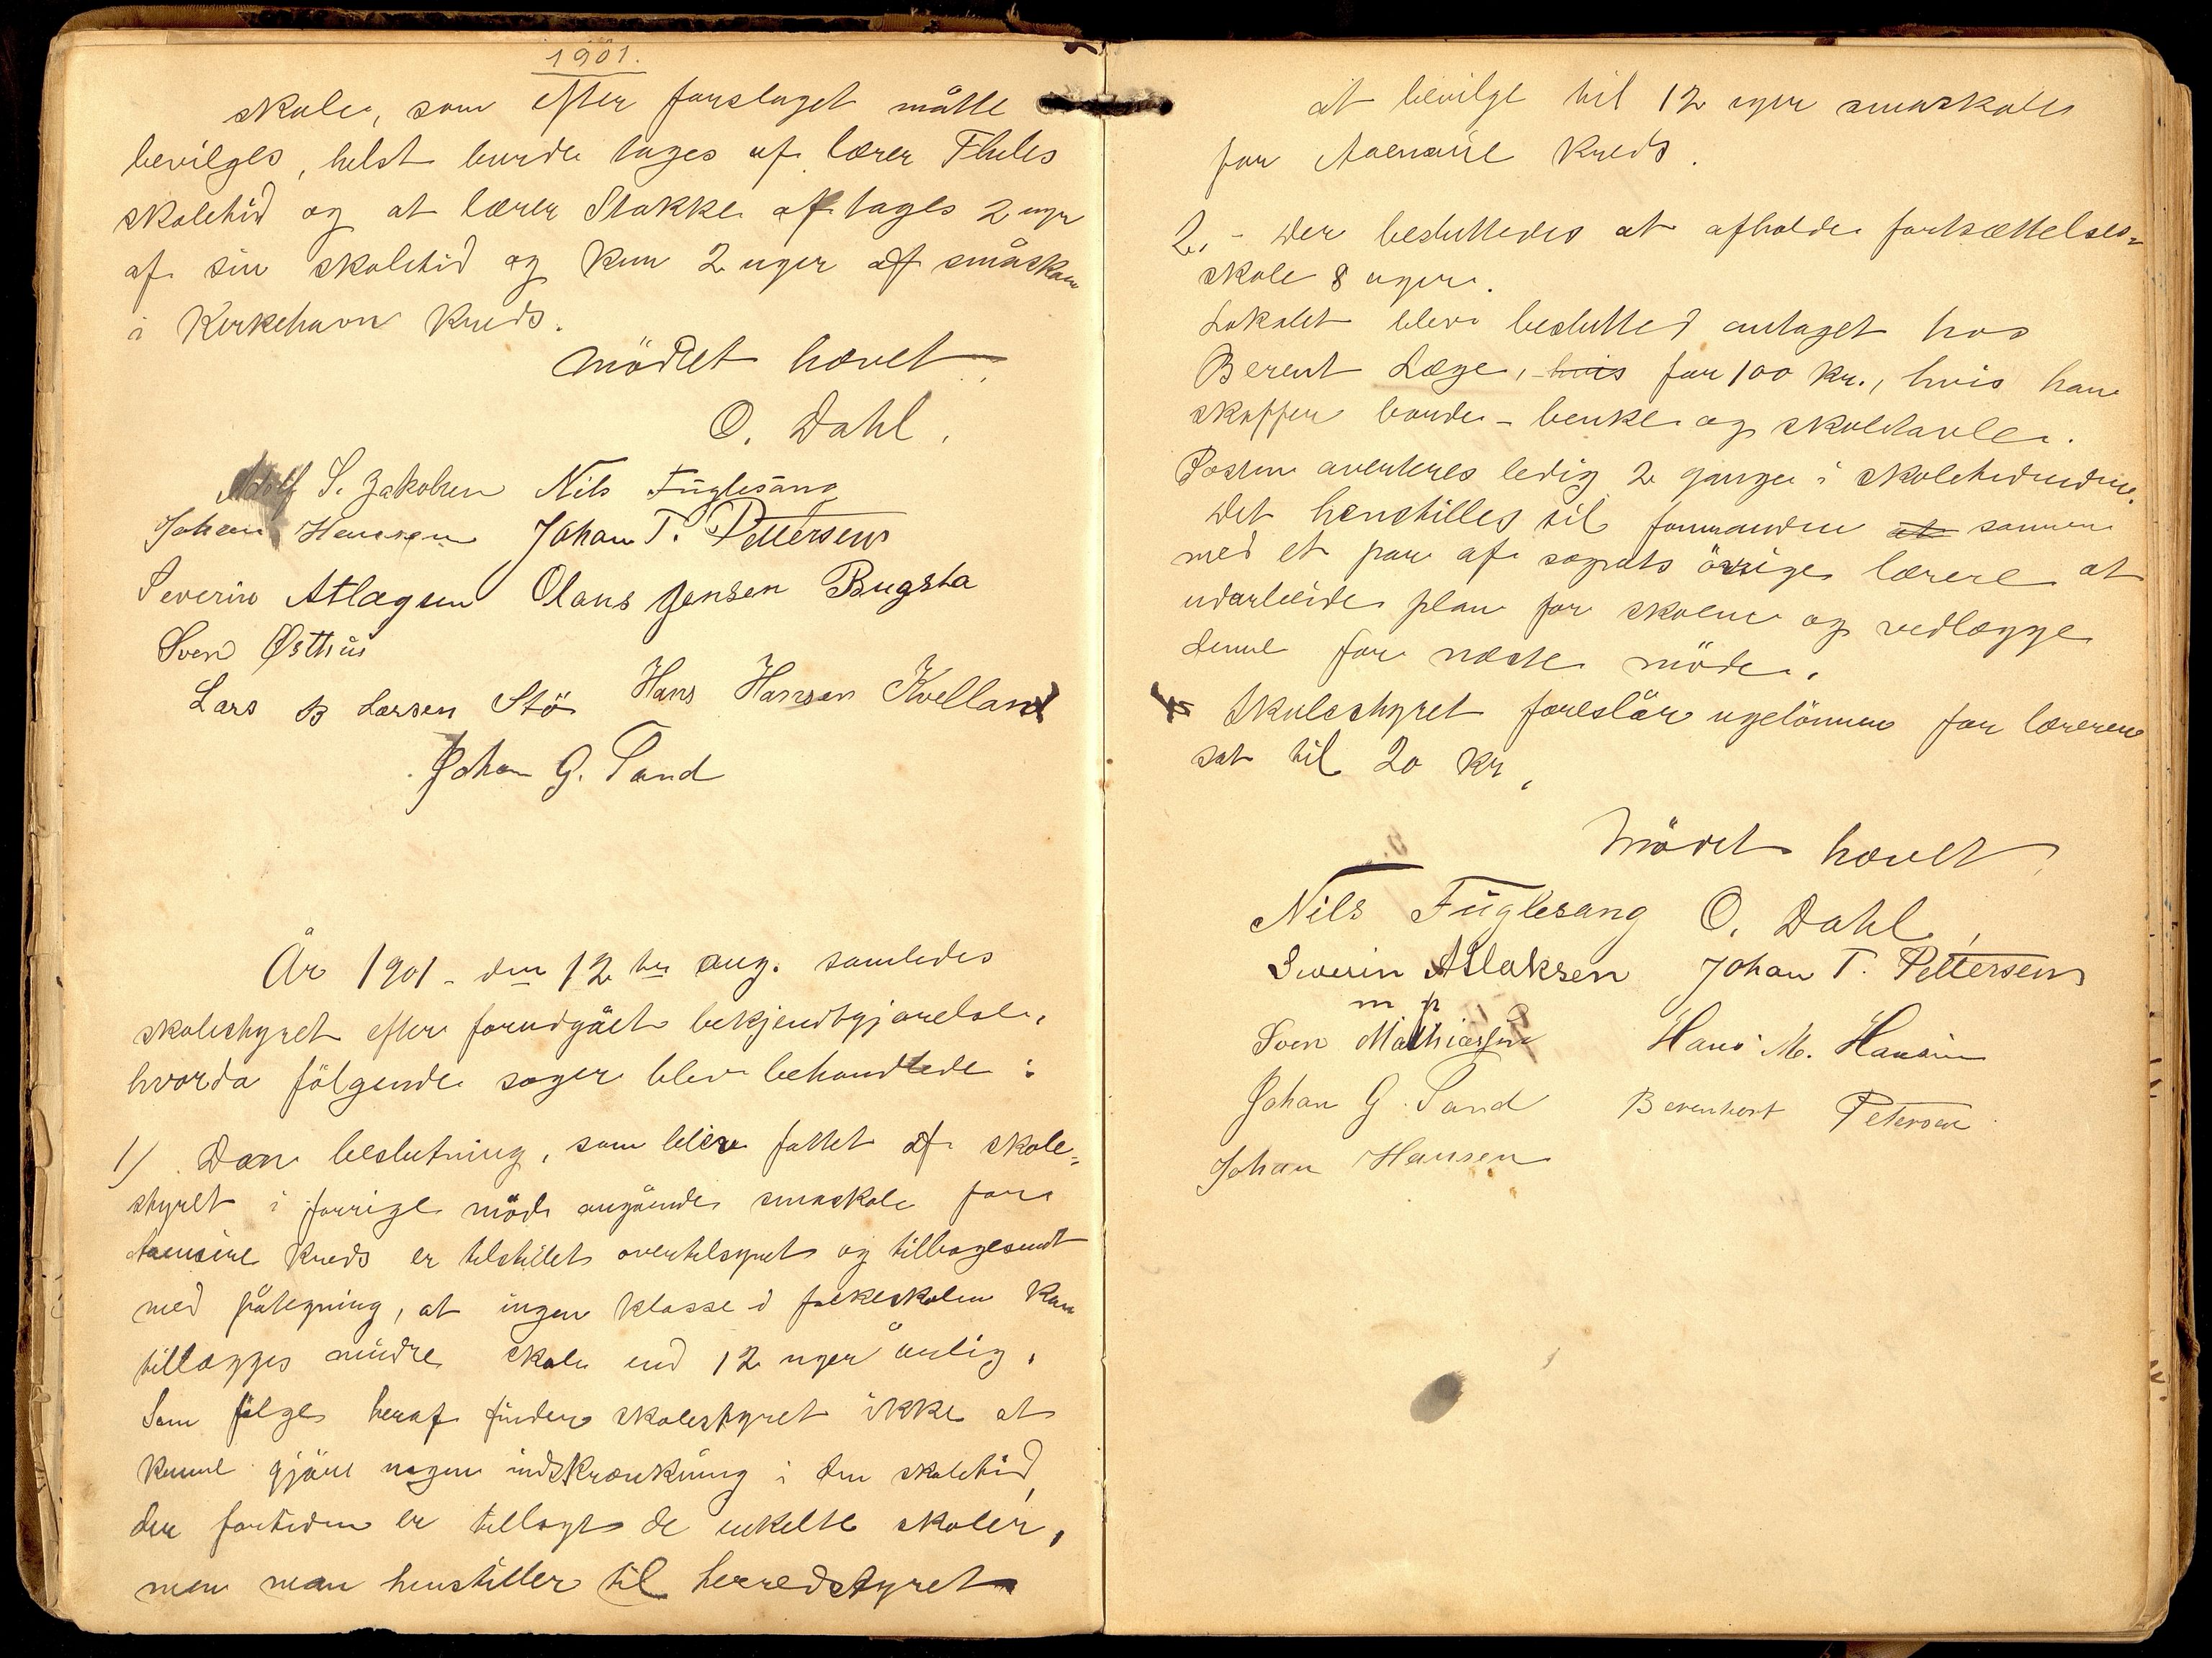 1901.
skole, som efter forslaget måtte
bevilges, helst burde tages af lærer Flules
skoletid og at lærer Stakke aftages 2 uger
af sin skoletid og kun 2 uger af småskole
i Kirkehavn Kreds.
Mödet hævet
O. Dahl.
Adolf S. Jakobsen Nils Fuglesang
Johan Hansen Johan T. Pettersen
Severin Atlagsen Olaus Jensen Bugsta
Sven Østhus
Lars B Larsen Stö Hans Hansen Kvelland
Johan G. Sand
År 1901 - den 12te aug. samledes
skolestyret efter forudgået bekjendtgjørelse,
hvorda fölgende sager blev behandlede:
1) Den beslutning, som blev fattet af skole=
styret i forrige möde angående smaskole for
Aaensire Kreds er tilstillet overtilsynet og tilbagesendt
med påtegning, at ingen klasse i folkeskolen kan
tillægges mindre skole end 12 uger årlig.
Som fölge heraf finder skolestyret ikke at
kunne gjöre nogen indskrænkning i den skoletid,
der fortiden er tillagt de enkelte skoler,
men man henstiller til herredstyret
at bevilge til 12 uger smaskole
for Aaensire Kreds.
2. - Der besluttedes at afholde fortsættelses=
skole 8 uger.
Lokalet blev beslutted antaget hos
Berent Læge, hvis for 100 kr., hvis han
skaffer borde - benke og skoletavle.
Posten averteres ledig 2 gange i skoletidende.
Det henstilles til formanden at sammen
med et par af sognets övrige lærere at
udarbeide plan for skolen og vedlægge
denne for næste möde.
Skolestyret foreslår ugelönnen for læreren
sat til 20 kr.
Mödet hævet
Nils Fuglesang O. Dahl,
Severin Atlaksen Johan T. Pettersen
m p
Sven Mathiassen Hans M. Hansen
Johan G. Sand Berenhart Petersen
Johan Hansen